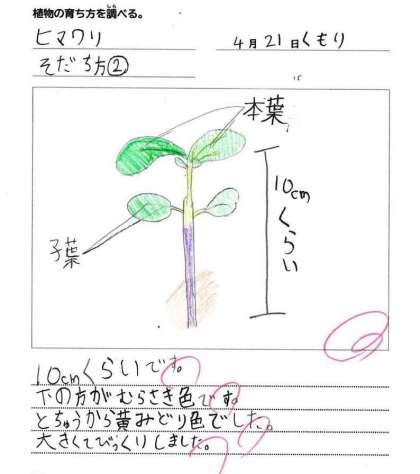 植物の育ち方を調べる。
ヒマワリ
4月21日くもり
そだち方②
本葉
10cmくらい
子葉
10cmくらいです。
下の方がむらさき色です。
とちゅうから黄みどり色でした。
大きくてびっくりしました。